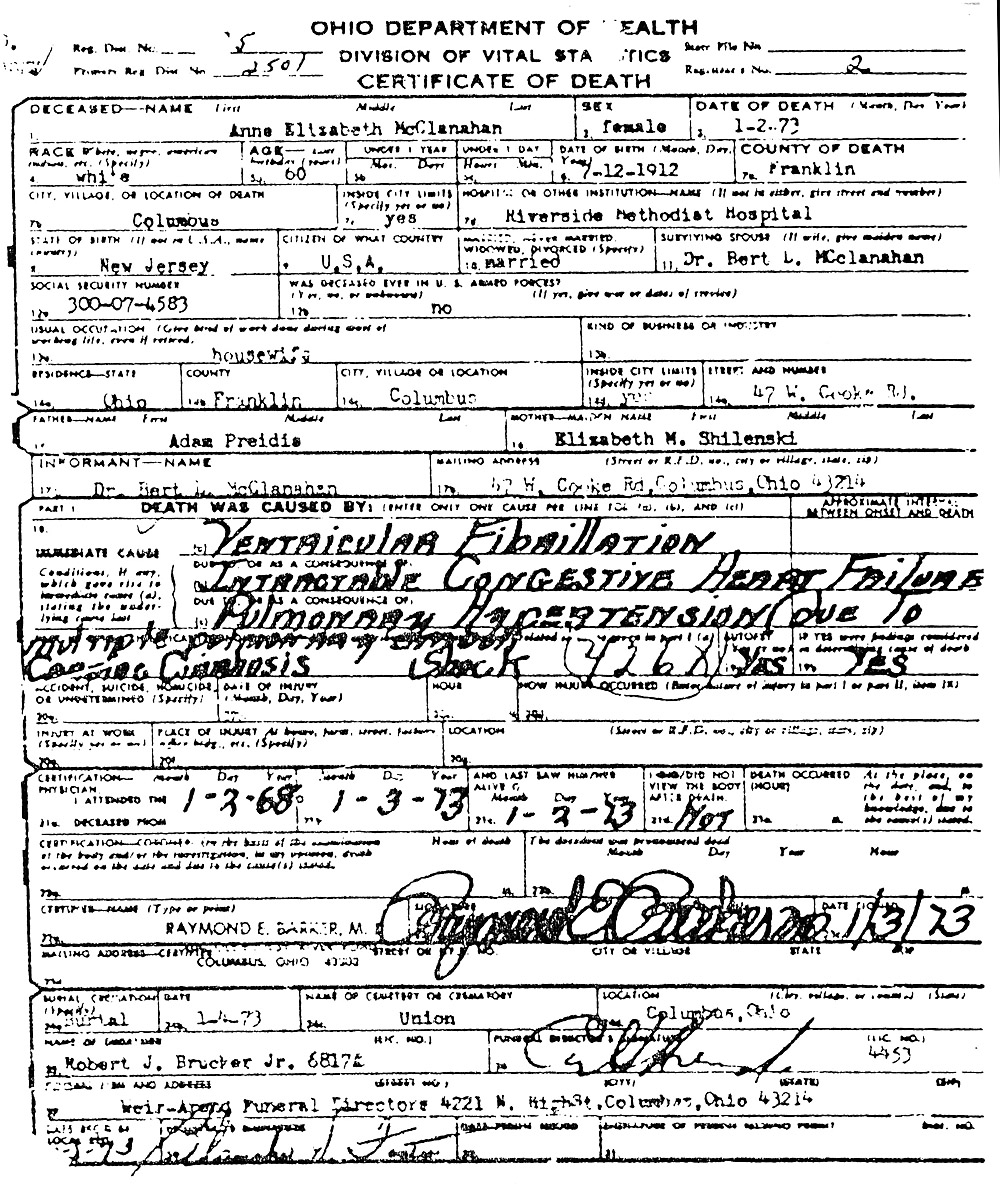 OHIO DEPARTMENT OF EALTH
Reg. Dist. No. 5 DIVISION OF VITAL STA TICS State File No.
Primary Reg. Dist. No. 2501 CERTIFICATE OF DEATH Registrar's No. 2
DECEASED—NAME First Middle Last SEX DATE OF DEATH (Month, Day, Year)
1. Anne Elizabeth McClanahan 2. female 3. 1-2-73
RACE White, negro, american AGE—Last UNDER 1 YEAR UNDER 1 DAY DATE OF BIRTH (Month, Day, COUNTY OF DEATH
indian, etc. (Specify) birthday (years) Mos. Days Hours Min. Year)
4. white 5a. 60 5b. 5c. 6. 7-12-1912 7a. Franklin
CITY, VILLAGE, OR LOCATION OF DEATH INSIDE CITY LIMITS HOSPITAL OR OTHER INSTITUTION—NAME (If not in either, give street and number)
(Specify yes or no)
7b. Columbus 7c. yes 7d. Riverside Methodist Hospital
STATE OF BIRTH (If not in U.S.A., name CITIZEN OF WHAT COUNTRY MARRIED, NEVER MARRIED, SURVIVING SPOUSE (If wife, give maiden name)
country) WIDOWED, DIVORCED (Specify)
8. New Jersey 9. U.S.A. 10. married 11. Dr. Bert L. McClanahan
SOCIAL SECURITY NUMBER WAS DECEASED EVER IN U. S. ARMED FORCES?
(Yes, no, or unknown) (If yes, give war or dates of service)
12a. 300-07-4583 12b. no
USUAL OCCUPATION (Give kind of work done during most of KIND OF BUSINESS OR INDUSTRY
working life, even if retired.
13a. housewife 13b.
RESIDENCE—STATE COUNTY CITY, VILLAGE OR LOCATION INSIDE CITY LIMITS STREET AND NUMBER
(Specify yes or no)
14a. Ohio 14b. Franklin 14c. Columbus 14d. yes 14e. 47 W. Cooke Rd.
FATHER—NAME First Middle Last MOTHER—MAIDEN NAME First Middle Last
15. Adam Preidis 16. Elizabeth M. Shilenski
INFORMANT—NAME MAILING ADDRESS (Street or R.F.D. no., city or village, state, zip)
17a. Dr. Bert L. McClanahan 17b. 47 W. Cooke Rd,Columbus,Ohio 43214
PART I DEATH WAS CAUSED BY: (ENTER ONLY ONE CAUSE PER LINE FOR (a), (b), AND (c)) APPROXIMATE INTERVAL
BETWEEN ONSET AND DEATH
18.
IMMEDIATE CAUSE (a) VENTRICULAR FIBRILLATION
Conditions, if any, DUE TO OR AS A CONSEQUENCE OF:
which gave rise to (b) INTRACTABLE CONGESTIVE HEART FAILURE
immediate cause (a), DUE TO OR AS A CONSEQUENCE OF:
stating the under-
lying cause last (c) PULMONARY HYPERTENSION (DUE TO
MULTIPLE PULMONARY EMBOLI AUTOPSY IF YES were findings considered
in determining cause of death
CARDIAC CIRRHOSIS SHOCK 426X 19a. YES 19b. YES
ACCIDENT, SUICIDE, HOMICIDE, DATE OF INJURY HOUR HOW INJURY OCCURRED (Enter nature of injury in part I or part II, item 18)
OR UNDETERMINED (Specify) (Month, Day, Year)
20a. 20b. 20c. 20d.
INJURY AT WORK PLACE OF INJURY At home, farm, street, factory LOCATION (Street or R.F.D. no., city or village, state, zip)
(Specify yes or no) office bldg., etc. (Specify)
20e. 20f. 20g.
CERTIFICATION— Month Day Year Month Day Year AND LAST SAW HIM/HER I DID/DID NOT DEATH OCCURRED At the place, on
PHYSICIAN ALIVE ON VIEW THE BODY (HOUR) the date, and, to
I ATTENDED THE Month Day Year AFTER DEATH. the best of my
knowledge, due to
21a. DECEASED FROM 1-2-68 21b. 1-3-73 21c. 1-2-73 21d. NOT 21e. M. the cause(s) stated.
CERTIFICATION—CORONER On the basis of the examination Hour of death The decedent was pronounced dead
of the body and/or the investigation, in my opinion, death Month Day Year Hour
occurred on the date and due to the cause(s) stated.
22a. M. 22b. M
CERTIFIER—NAME (Type or print) SIGNATURE DATE SIGNED
RAYMOND E. BARKER, M. Raymond E Barker 1/3/73
MAILING ADDRESS—CERTIFIER STREET OR R.F.D. NO. CITY OR VILLAGE STATE ZIP
COLUMBUS, OHIO
BURIAL, CREMATION DATE NAME OF CEMETERY OR CREMATORY LOCATION (City, village, or county) (State)
(Specify)
24a. Burial 24b. 1-4-73 24c. Union 24d. Columbus,Ohio
NAME OF EMBALMER (LIC. NO.) FUNERAL DIRECTOR'S SIGNATURE (LIC. NO.)
25. Robert J. Brucker Jr. 6817A 26. 4453
FUNERAL FIRM AND ADDRESS (STREET NO.) (CITY) (STATE) (ZIP)
27. Weir-Arend Funeral Directors 4221 N. HighSt.Columbus,Ohio 43214
DATE REC'D BY REGISTRAR'S SIGNATURE DATE PERMIT ISSUED SIGNATURE OF PERSON ISSUING PERMIT DIST. NO.
LOCAL REG.
30. 31.